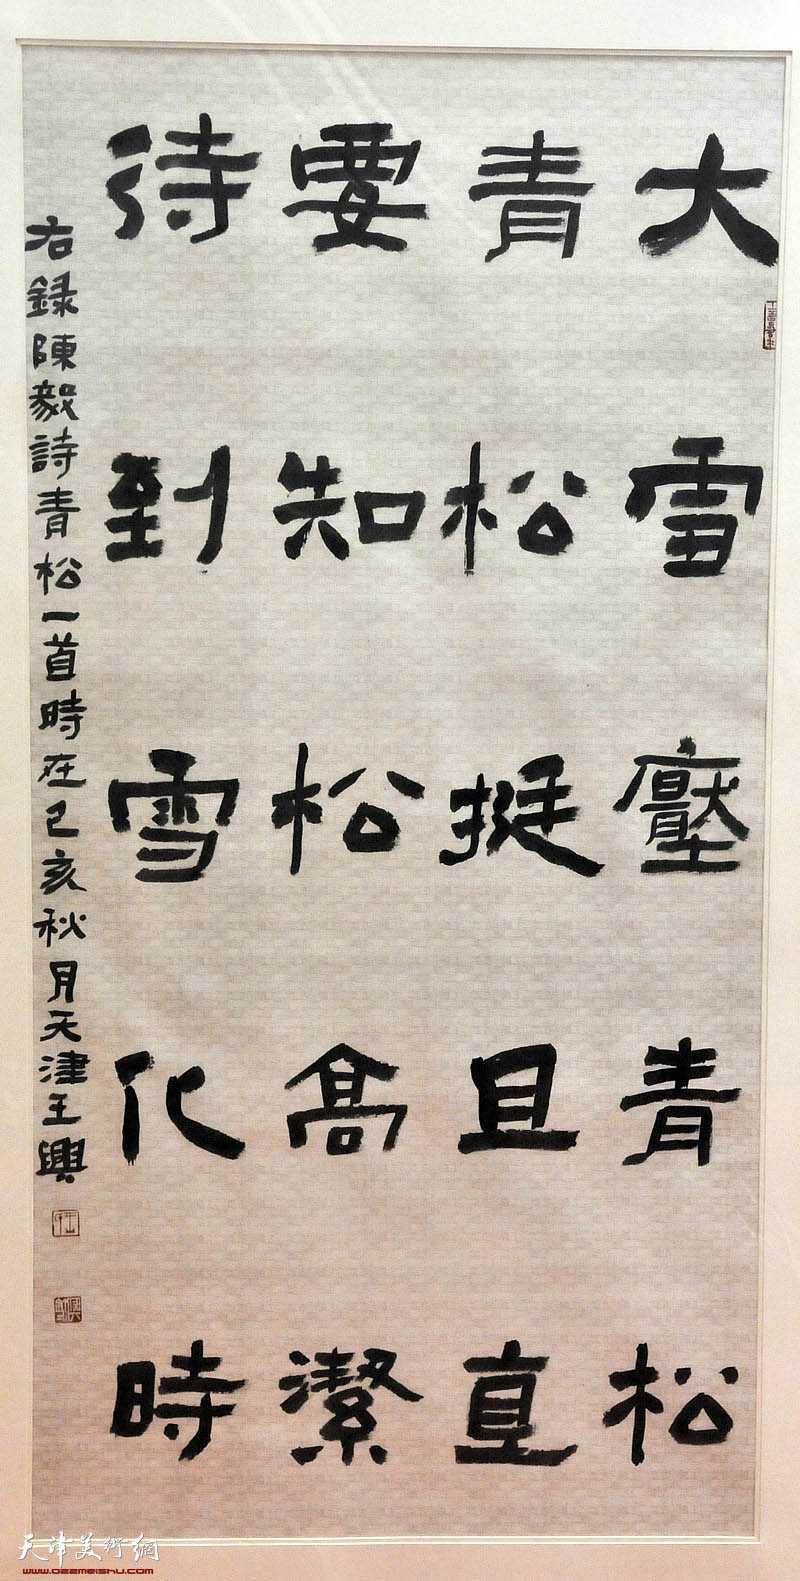 大雪壓青松
青松挺且直
要知松高潔
待到雪化時
右錄陳毅詩青松一首時在己亥秋月天津王興
天津美術網
www.022meishu.com